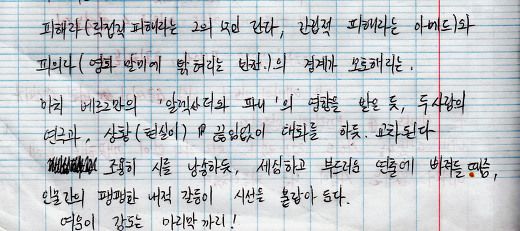 피해자(직접적 피해라는 그의 모인 란다, 간접적 피해라는 아메드)와
피의자(영화 말미에 밝혀지는 반전.)의 경계가 모호해지는.
마치 베르그만의 '알렉산더와 파니'의 영향을 받은 듯, 두사람의
연극과, 상황(현실이) 끊임없이 대화를 하듯. 교차된다
조용히 시를 낭송하듯, 세심하고 부드러운 연출에 빠져들 때쯤,
인물간의 팽팽한 내적 갈등이 시선을 붙잡아 둔다.
여운이 감도는 마지막 까지!